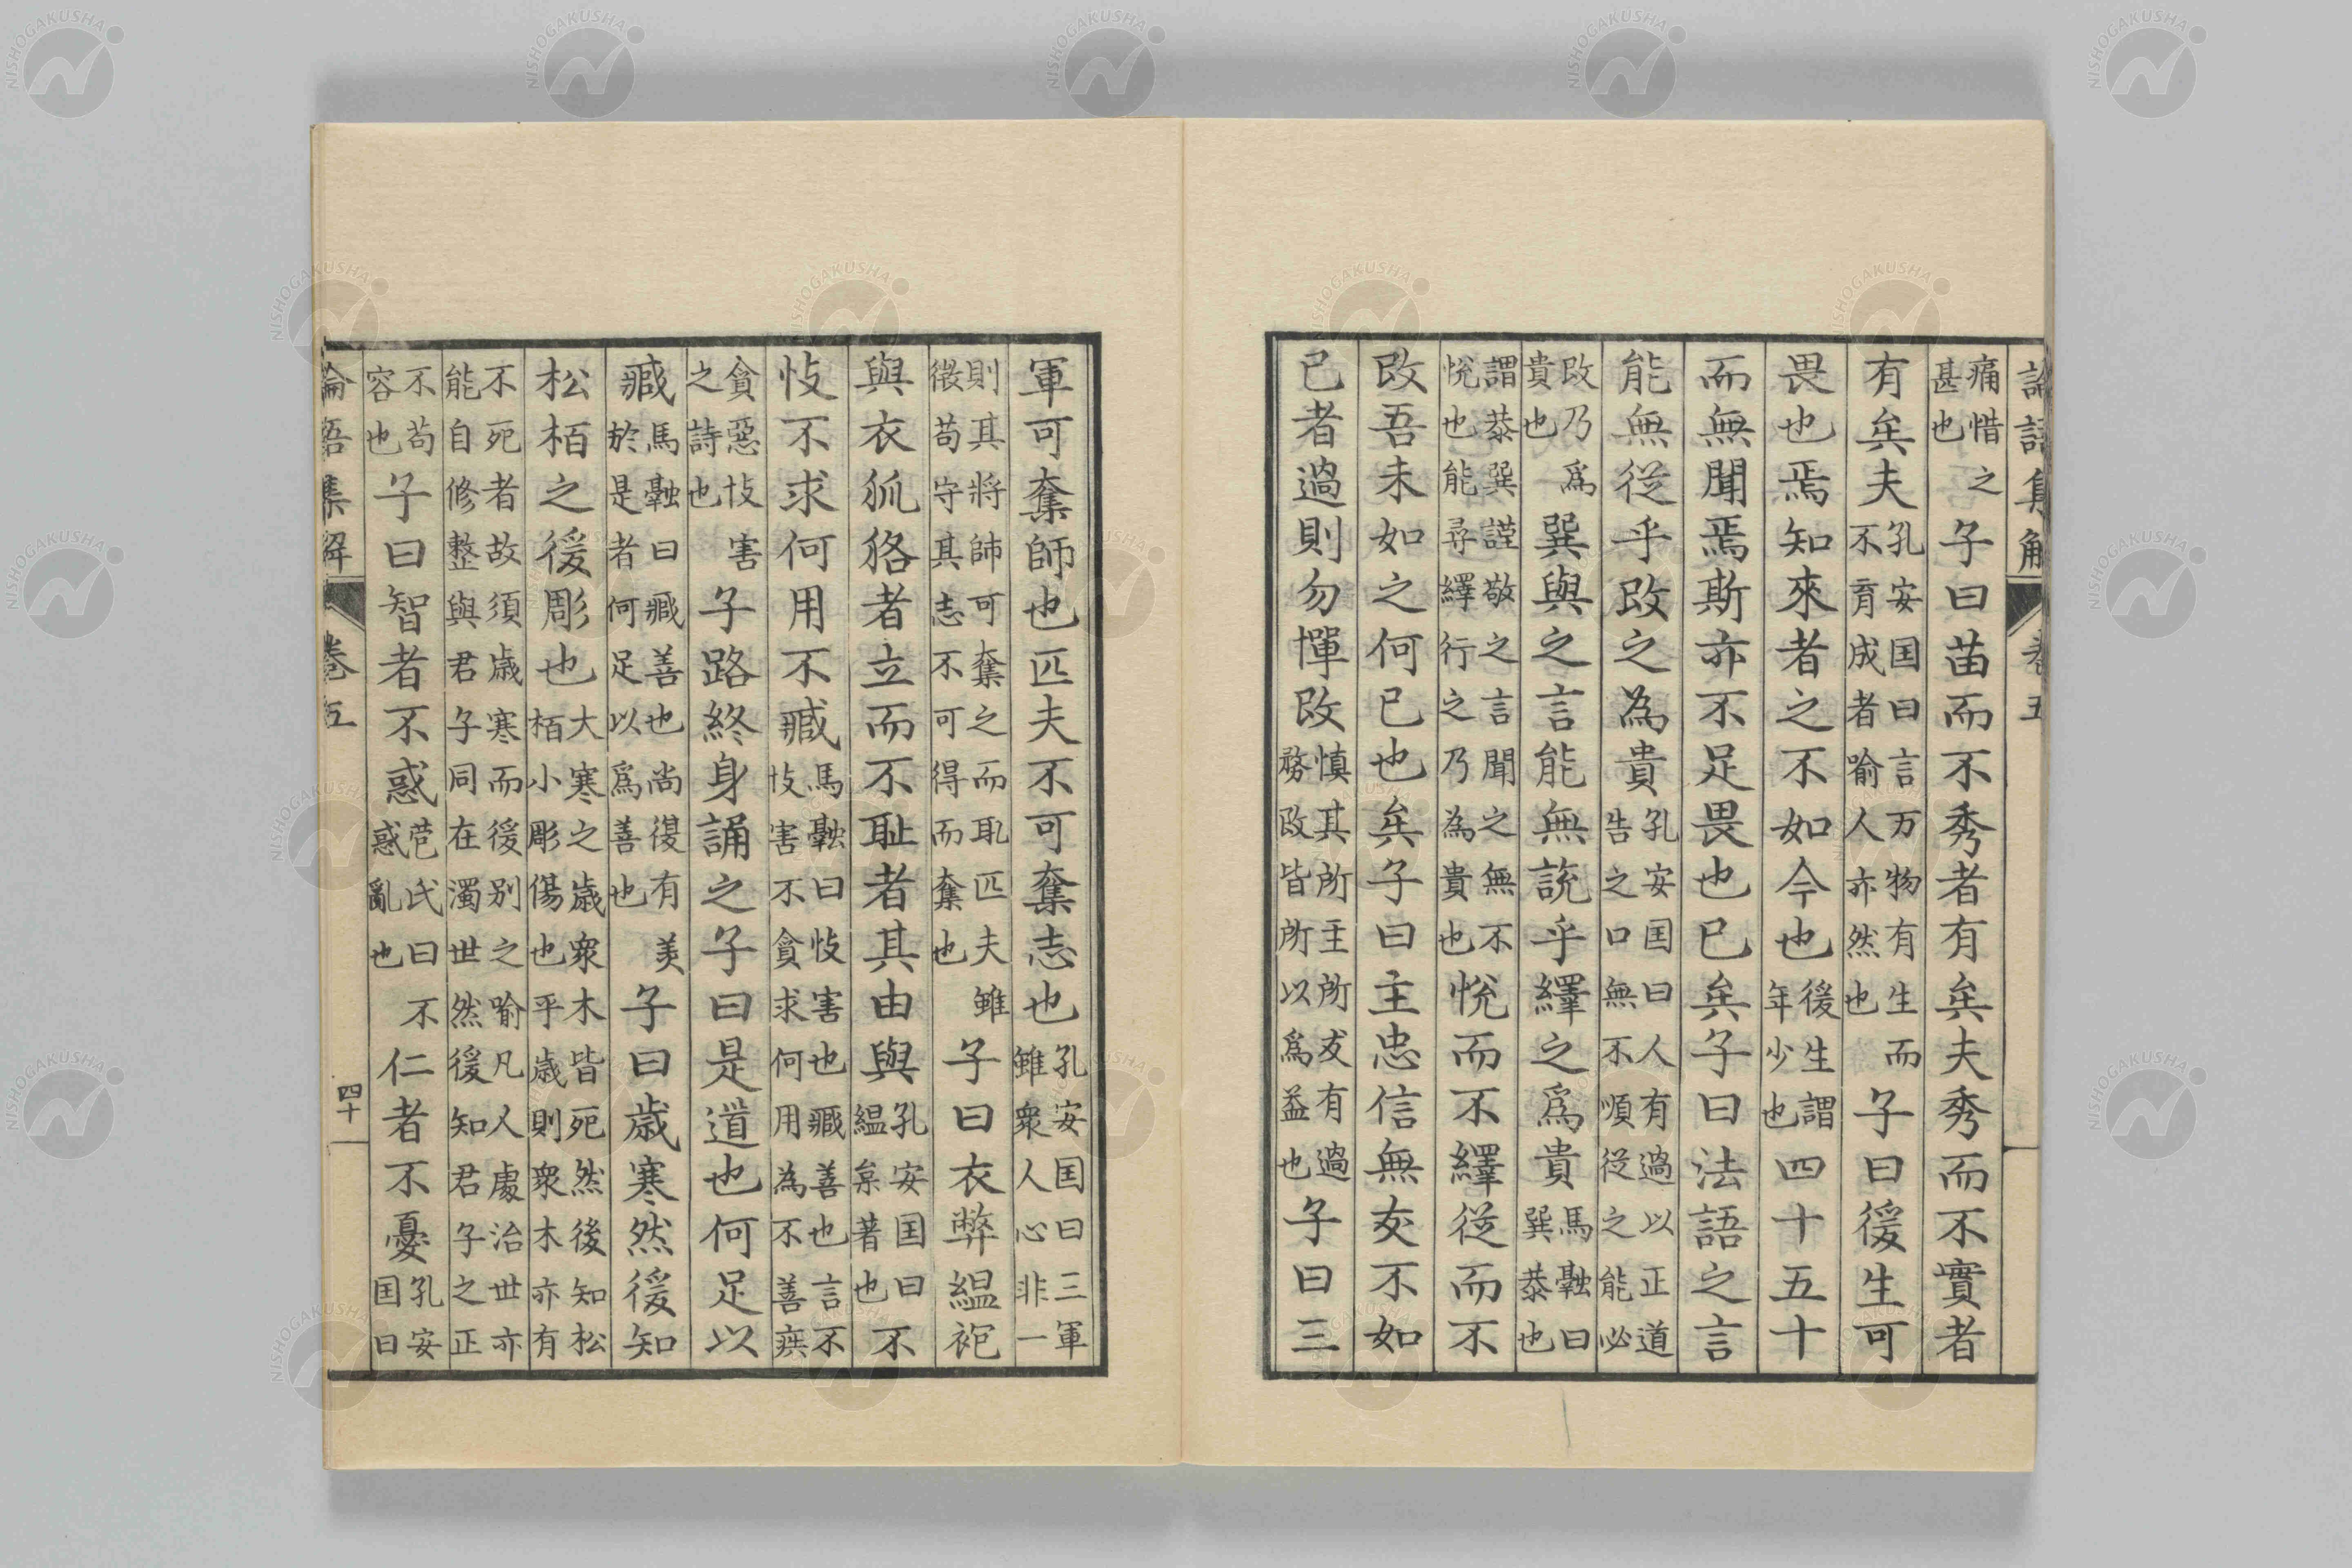 論語集解 卷五
痛惜之甚也子曰苗而不秀者有矣夫秀而不實者
有矣夫孔安国曰言万物有生而不育成者喻人亦然也子曰後生可
畏也焉知來者之不如今也後生謂年少也四十五十
而無聞焉斯亦不足畏也已矣子曰法語之言
能無從乎改之為貴孔安国曰人有過以正道告之口無不順從之能必
改乃爲貴也巽與之言能無說乎繹之爲貴馬融曰巽恭也
謂恭巽謹敬之言聞之無不悅也能尋繹行之乃為貴也悅而不繹從而不
改吾未如之何已也矣子曰主忠信無友不如
已者過則勿憚改慎其所主所友有過務改皆所以爲益也子曰三
軍可奪師也匹夫不可奪志也孔安国曰三軍雖衆人心非一
則其將師可奪之而耴匹夫雖微苟守其志不可得而奪也子曰衣弊縕袍
與衣狐狢者立而不耻者其由與孔安国曰縕枲著也不
忮不求何用不臧馬融曰忮害也臧善也言不忮害不貪求何用為不善疾
貪惡忮害之詩也子路終身誦之子曰是道也何足以
臧馬融曰臧善也尚復有美於是者何足以爲善也子曰歲寒然後知
松栢之後彫也大寒之歲衆木皆死然後知松栢小彫傷也平歲則衆木亦有
不死者故須歲寒而後別之喻凡人處治世亦能自修整與君子同在濁世然後知君子之正
不苟容也子曰智者不惑苞氏曰不惑亂也仁者不憂孔安国曰
論語集解 卷五 四十
NISHOGAKUSHA